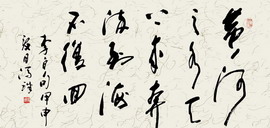 黄河
之水天
上来奔
流到海
不復回
李白句甲申
夏月